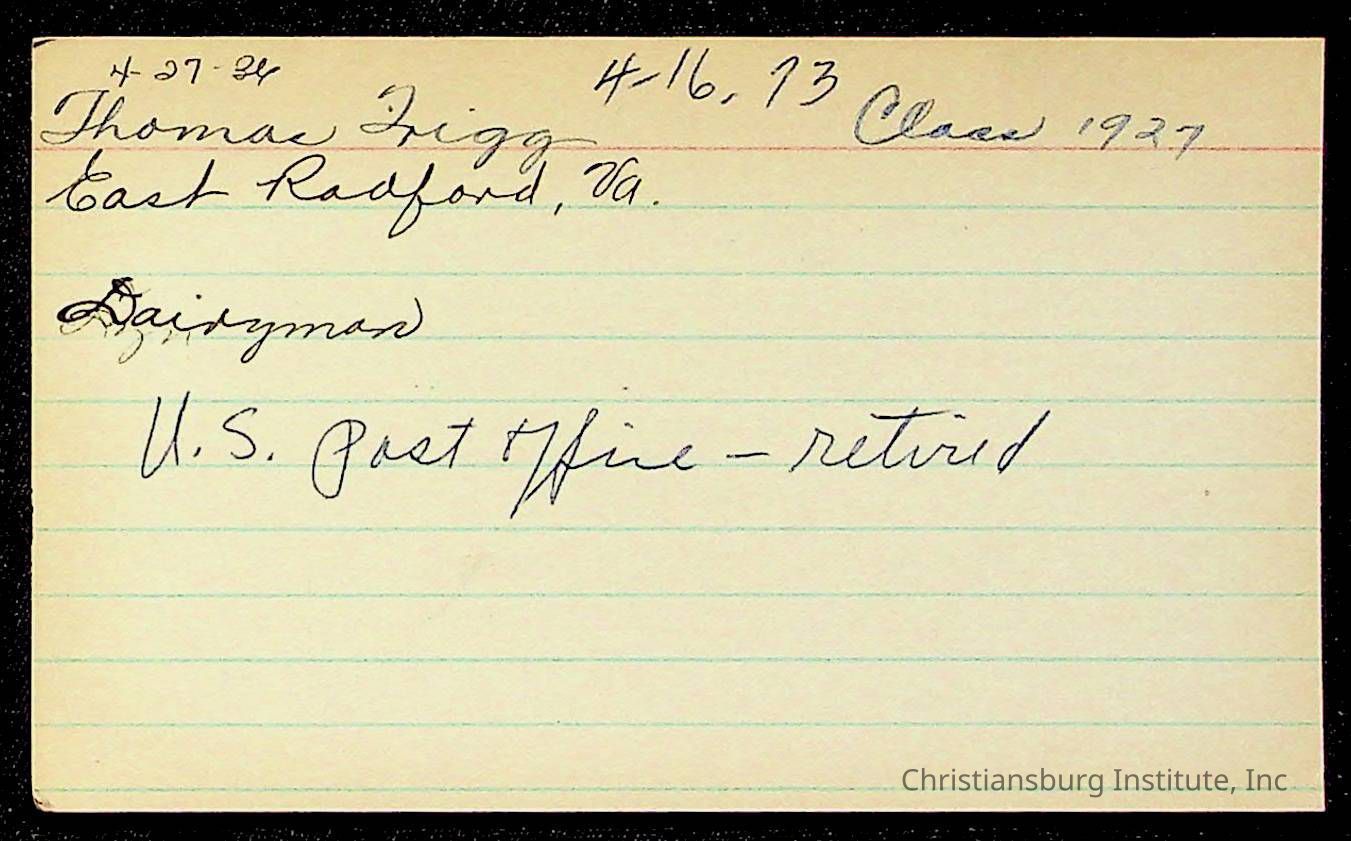 4-27-36 4-16, 73
Thomas Trigg Class 1927
East Radford, Va.
Dairyman
U.S. Post Office – retired
Christiansburg Institute, Inc